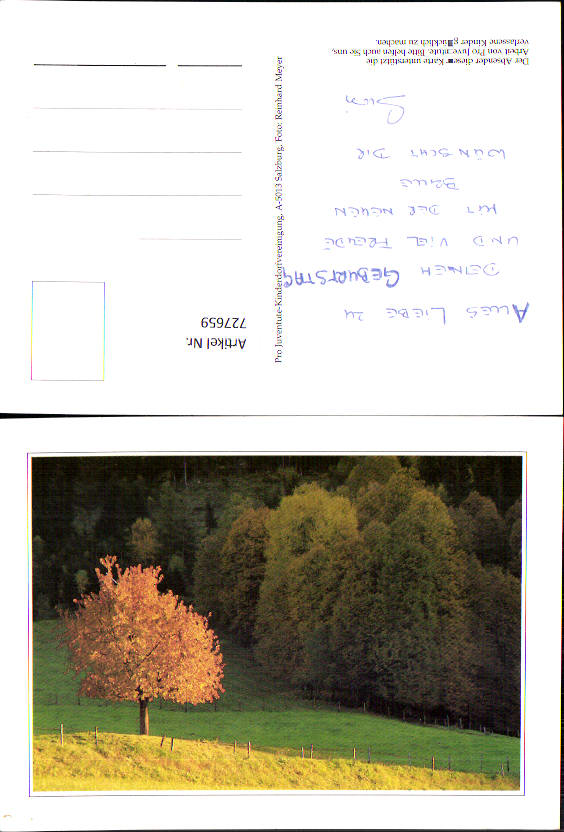 Der Absender dieser Karte unterstützt die
Arbeit von Pro Juventute. Bitte helfen auch Sie uns,
verlassene Kinder glücklich zu machen.
ALLES LIEBE ZU
DEINEM GEBURTSTAG
UND VIEL FREUDE
MIT DER NEUEN
WÜNSCHT DIR
Pro Juventute-Kinderdorfvereinigung, A-5013 Salzburg, Foto: Reinhard Meyer
Artikel Nr.
727659